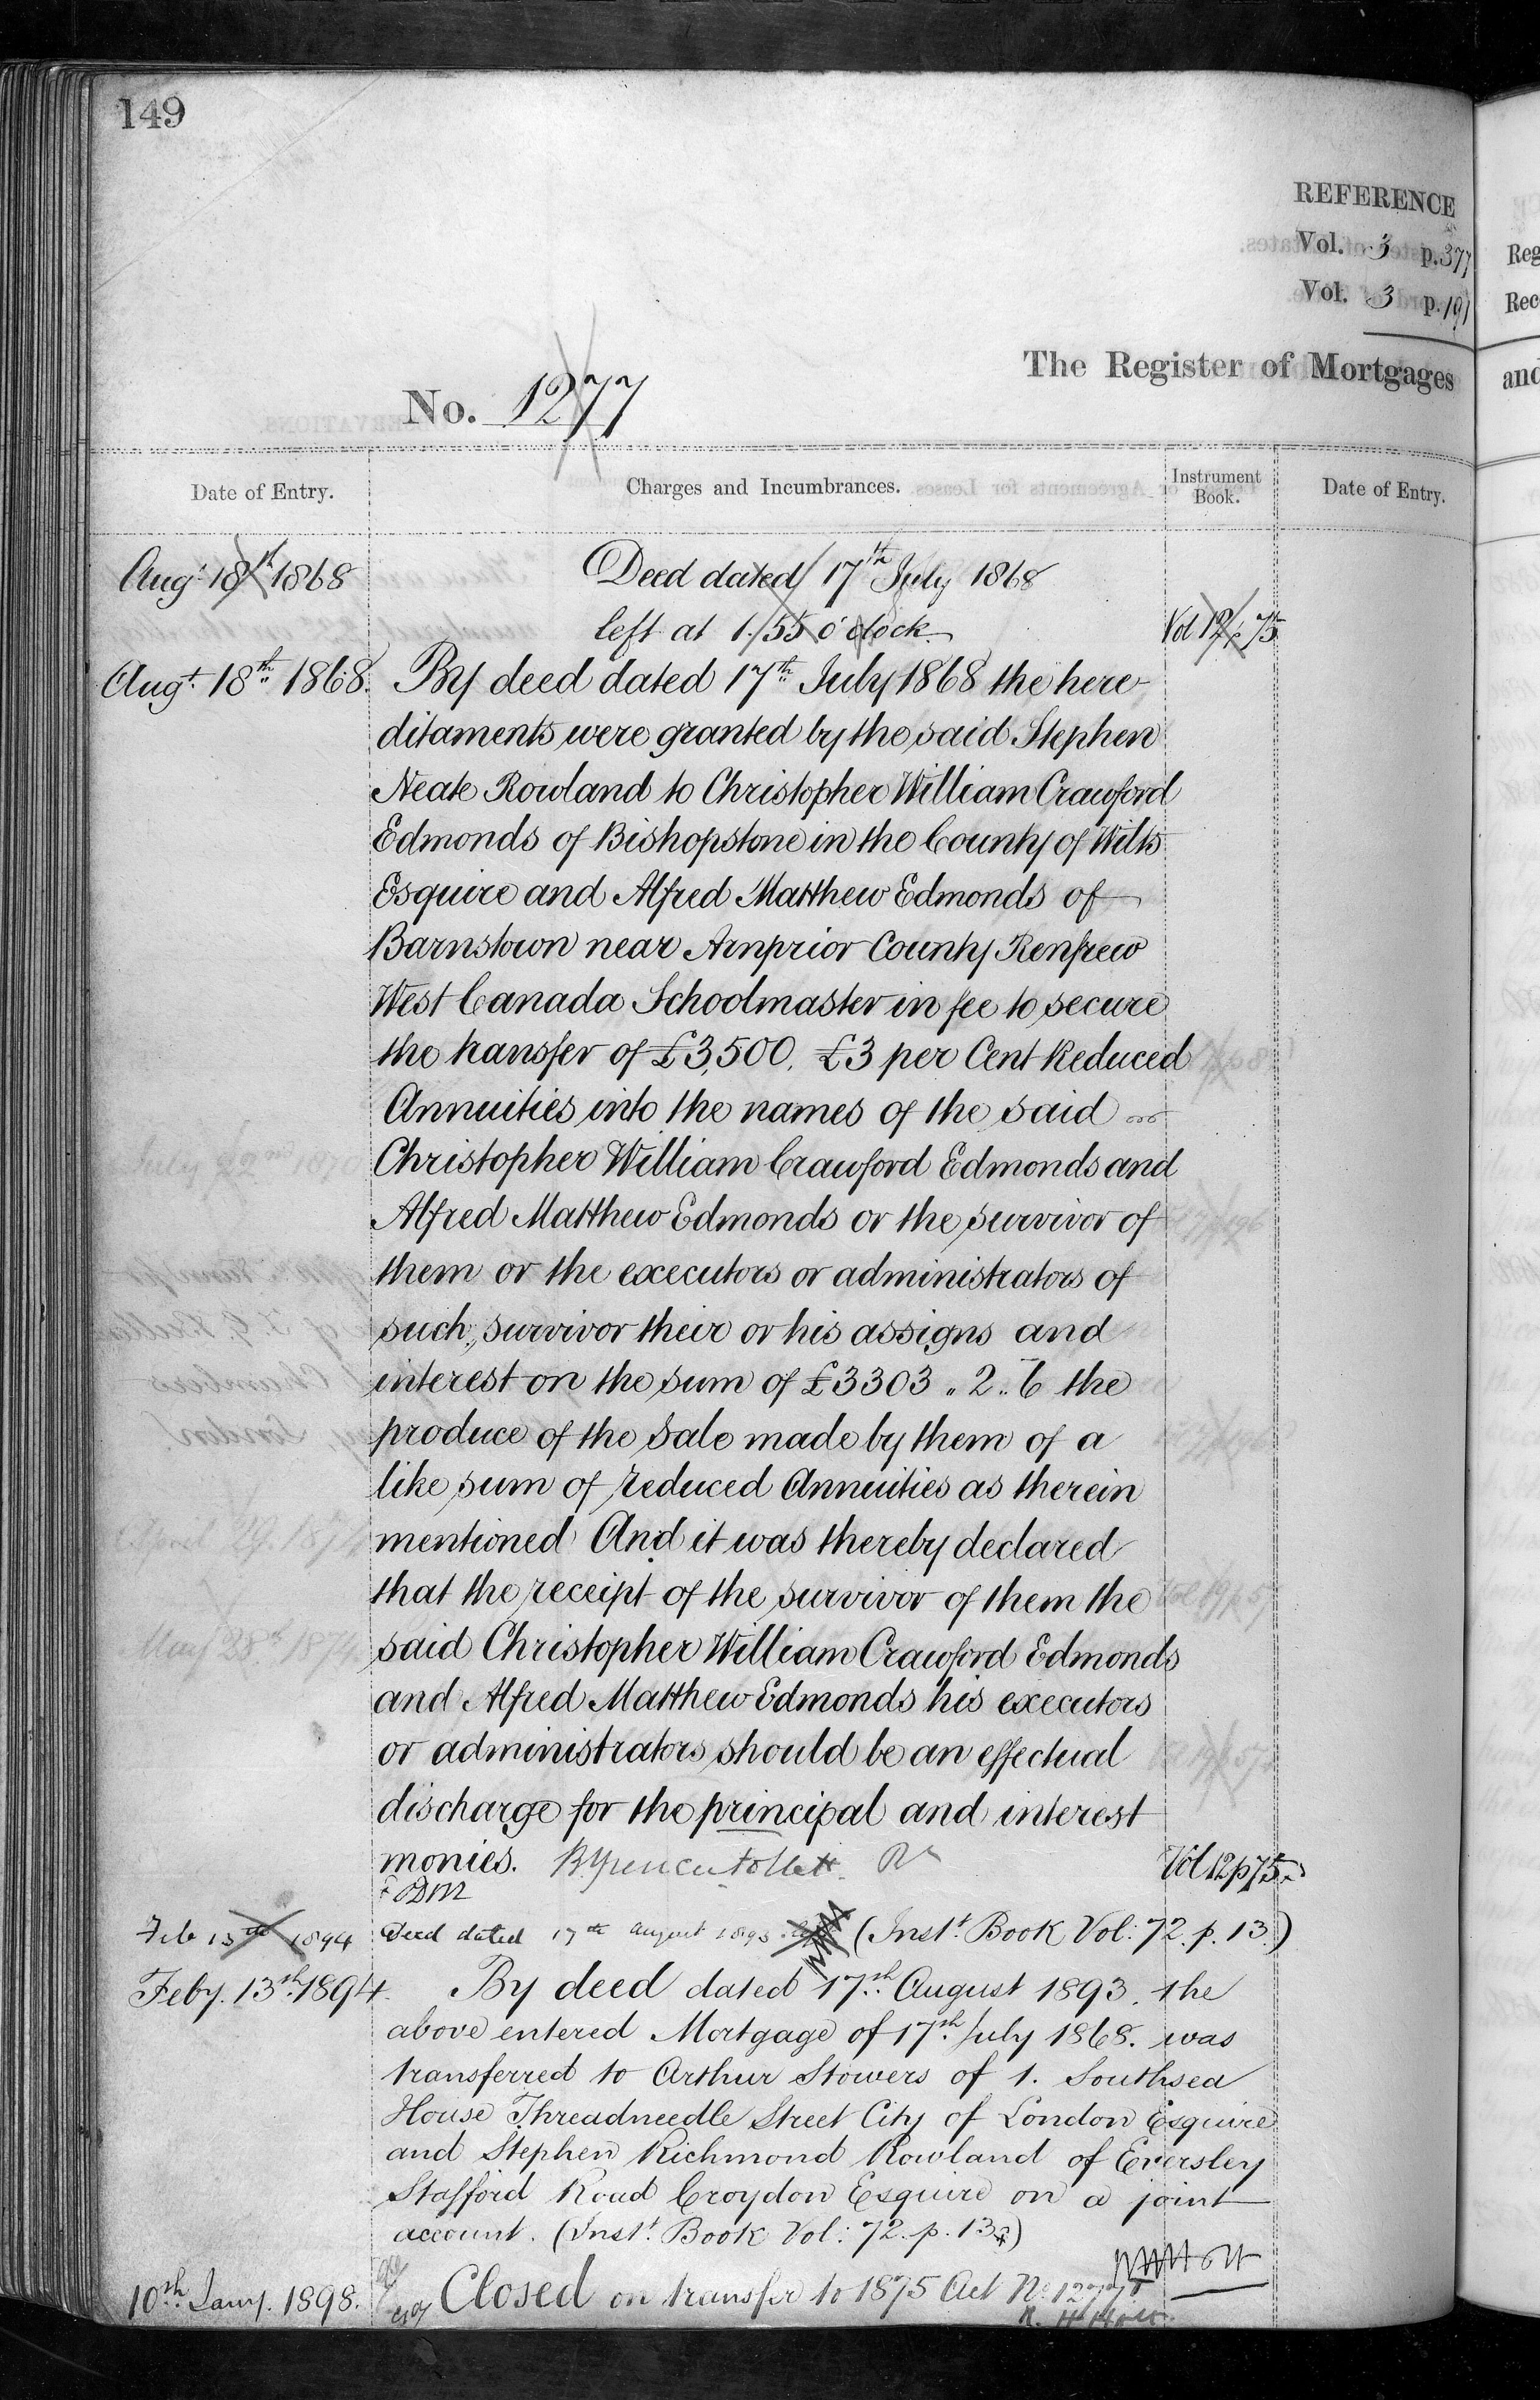 149
REFERENCE
Vol. 3 p. 377
Vol. 3 p. 191
The Register of Mortgages
No. 1277
Date of Entry.
Charges and Incumbrances.
Instrument
Book.
Date of Entry.
Augt 18th 1868
Deed dated 17th July 1868
left at 1.55 o'clock
Vol 12 p 75
Augt. 18th 1868. By deed dated 17th July 1868 the here-
ditaments were granted by the said Stephen
Neate Rowland to Christopher William Crawford
Edmonds of Bishopstone in the County of Wilts
Esquire and Alfred Matthew Edmonds of
Barnstown near Arnprior County Renfrew
West Canada Schoolmaster in fee to secure
the transfer of £3,500. £3 per Cent Reduced
Annuities into the names of the said
Christopher William Crawford Edmonds and
Alfred Matthew Edmonds or the survivor of
them or the executors or administrators of
such survivor their or his assigns and
interest on the sum of £3303 .. 2 .. 6 the
produce of the sale made by them of a
like sum of reduced Annuities as therein
mentioned And it was thereby declared
that the receipt of the survivor of them the
said Christopher William Crawford Edmonds
and Alfred Matthew Edmonds his executors
or administrators should be an effectual
discharge for the principal and interest
monies.
Vol 12 p 75
Feb 13th 1894 Deed dated 17th August 1893 (Inst. Book Vol: 72. p. 13.)
Feby. 13th 1894. By deed dated 17th August 1893. the
above entered Mortgage of 17th July 1868. was
transferred to Arthur Stowers of 1. Southsea
House Threadneedle Street City of London Esquire
and Stephen Richmond Rowland of Eversley
Stafford Road Croydon Esquire on a joint
account. (Inst. Book Vol: 72. p. 13.)
10th Jany. 1898. Closed on transfer to 1875 Act No. 1277
Reg
Rec
and